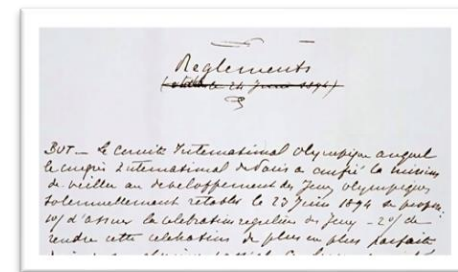 Règlements
(établis le 24 Juin 1894)
BUT – Le Comité International Olympique auquel
le congrès International de Paris a confié la mission
de veiller au développement des Jeux olympiques
solennellement rétablis le 23 Juin 1894 se propose
1o/ d'assurer la célébration régulière des Jeux – 2o/ de
rendre cette célébration de plus en plus parfaite